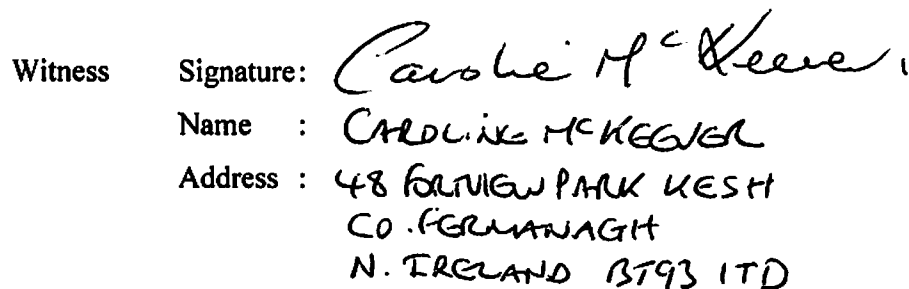 Witness Signature: Caroline McKeever
Name : CAROLINE McKEEVER
Address : 48 FORTVIEW PARK KESH
CO. FERMANAGH
N. IRELAND BT93 1TD